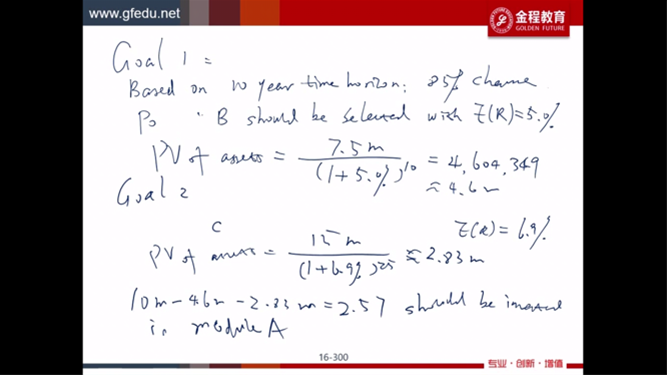 www.gfedu.net
金程教育
GOLDEN FUTURE
Goal 1 =
Based on 10 year time horizon: 85% chance
Po B should be selected with E(R)=5.0%
PV of assets = 7.5 m / (1+5.0%)^10 = 4,604,349
≈ 4.6 m
Goal 2
C
E(R) = 6.9%
PV of assets = 15 m / (1+6.9%)^25 ≈ 2.83 m
10m - 4.6m - 2.83 m = 2.57 should be invested
in module A
16-300
专业·创新·增值